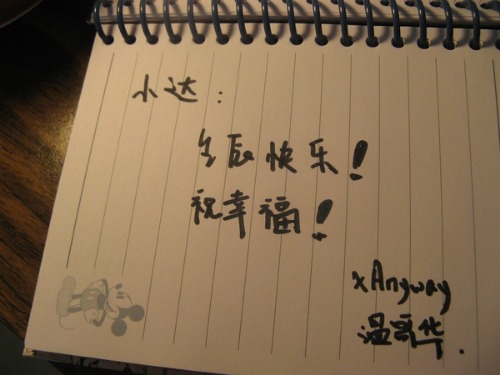 小达：
生辰快乐！
祝幸福！
xAnyway
温哥华.